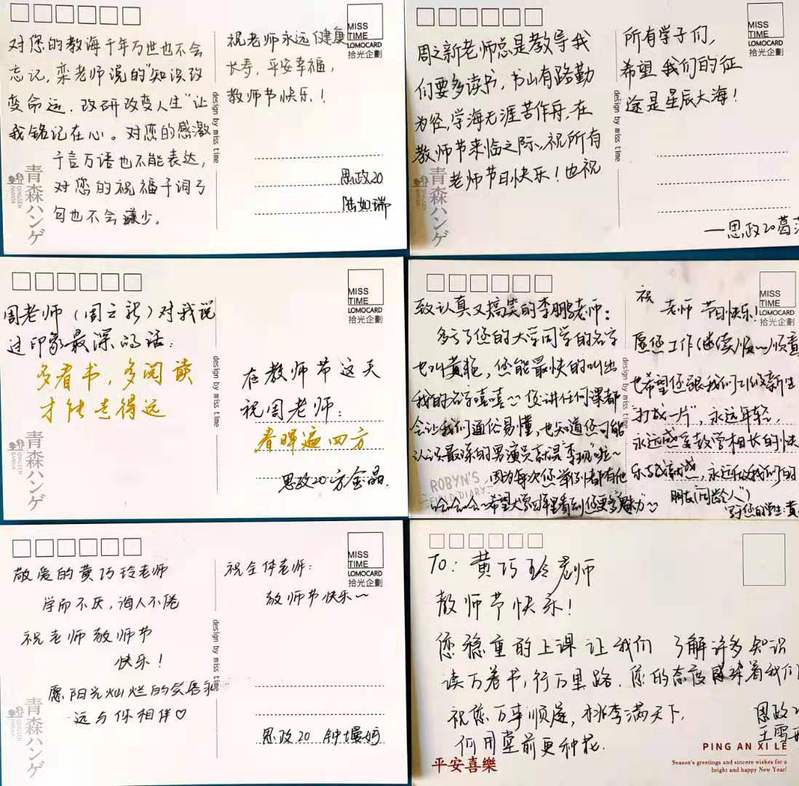 对您的教诲千年万世也不会
忘记，栾老师说的"知识改
变命运，改研改变人生"让
我铭记在心。对您的感激
千言万语也不能表达，
对您的祝福千词万
句也不会减少。
祝老师永远健康
长寿，平安幸福，
教师节快乐！
思政20
陆如瑞
MISS
TIME
LOMOCARD
拾光企劃
design by miss time
青森ハンゲ
周之新老师总是教导我
们要多读书，书山有路勤
为径，学海无涯苦作舟，在
教师节来临之际，祝所有
老师节日快乐！也祝
所有学子们，
希望我们的征
途是星辰大海！
——思政20葛
MISS
TIME
LOMOCARD
拾光企劃
design by miss time
青森ハンゲ
周老师（周之新）对我说
过印象最深的话：
多看书，多阅读
才能走得远
在教师节这天
祝周老师：
春晖遍四方
思政20 方金晶
MISS
TIME
LOMOCARD
拾光企劃
design by miss time
青森ハンゲ
致认真又搞笑的李鹏老师：
多亏了您的大学同学的名字
也叫黄艳，您能最快的叫出
我的名字嘻嘻~您讲任何课都
会让我们通俗易懂，也知道您可能
认识最深的男演员就是李现啦~
因为每次您举例都有他
哈哈哈~希望大学四年里看到您更多魅力
祝 老师 节日快乐！
愿您工作继续顺~顺意
也希望您跟我们20级新生
"打成一片"，永远年轻，
永远感受教学相长的快
永远做我们的
朋友
MISS
TIME
LOMOCARD
拾光企劃
design by miss time
ROBYN'S
DIARY
敬爱的黄巧玲老师
学而不厌，诲人不倦
祝老师教师节
快乐！
愿阳光灿烂的笑容永
远与你相伴♡
祝全体老师：
教师节快乐~
思政20 钟
MISS
TIME
LOMOCARD
拾光企劃
design by miss time
青森ハンゲ
To：黄巧玲老师
教师节快乐！
您稳重的上课让我们 了解许多知识
读万卷书，行万里路。您的态度 着我们
祝您万事顺遂，桃李满天下，
何用堂前更种花。
思政20
王雪
平安喜樂
PING AN XI LE
Season's greetings and sincere wishes for a
bright and happy New Year!